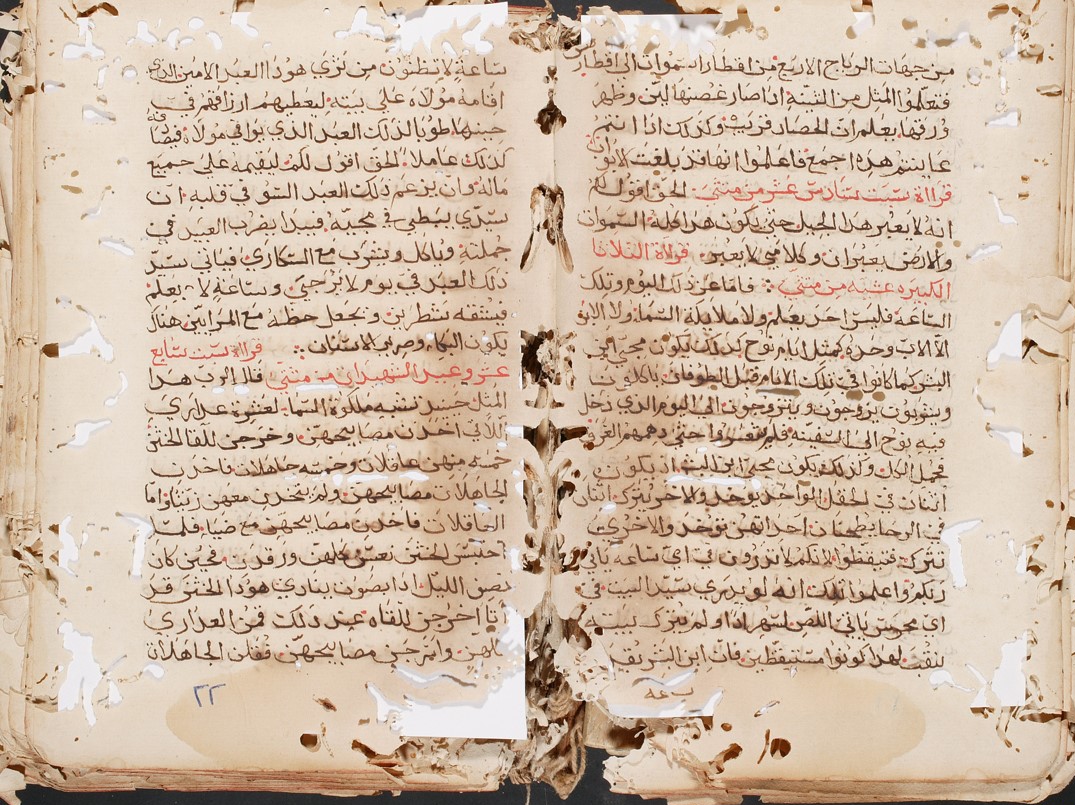 من جهات الرياح الاربع من اقطار السموات الى اقطارهن
فتعلموا المثل من التينة اذا صار غصنها لين وظهر
ورقها يعلم ان الحصاد قريب وكذلك اذا انتم
عاينتم هذه اجمع فاعلموا انها قد بلغت الابواب
قراة سبت سادس عشر من متى الحق اقول لكم
انه لا يعبر هذا الجيل حتى يكون هذا كله السموات
والارض يعبران وكلامي لا يعبر قراة الثلاثا
الكبيره عشيه من متى فاما عن ذلك اليوم وتلك
الساعة فليس احد يعلم ولا ملايكة السما ولا الابن
الا الاب وحده كمثل ايام نوح كذلك يكون مجي ابن
البشر كما كانوا في تلك الايام قبل الطوفان ياكلون
ويشربون يزوجون ويتزوجون الى اليوم الذي دخل
فيه نوح الى السفينه فلم يفهموا حتى دهمهم الغرق
فحمل الكل وكذلك يكون مجي ابن البشر اذ يكون
اثنان في الحقل الواحد يوخذ والاخر يترك اثنتان
في الرحا يطحنان احداهن توخذ والاخرى
تترك فتيقظوا لانكم لا تدرون في اي ساعه ياتي
ربكم واعلموا ذلك انه لو يدري سيد البيت في
اي محرس ياتي اللص لسهر اذا ولم يترك بيته
ينقب لهذا كونوا مستيقظين فان ابن البشر يقبل
ساعة لا تظنون من ترى هو ذا العبد الامين الذي
اقامه مولاه على بيته ليعطيهم ارزاقهم في
حينها طوبا لذلك العبد الذي يوافي مولاه فيصا
كذلك عاملا الحق اقول لكم ليقيمه على جميع
ماله وان يزعم ذلك العبد السو في قلبه ان
سيدي يبطي في مجيه فيبدا يضرب العبيد في
جملته وياكل ويشرب مع السكارى فياتي سيد
ذلك العبد في يوم لا يرجى وساعة لا يعلم
فيشقه شطرين ويجعل حظه مع المرايين هناك
يكون البكا وصرير الاسنان قراة سبت سابع
عشر وعيد الشهيدات من متى قال الرب هذا
المثل حينيذ تشبه ملكوة السما لعشرة عذارى
اللاتي اخذن مصابيحهن وخرجن للقا الختن
خمسه منهن عاقلات وخمسه جاهلات فاخذن
الجاهلات مصابيحهن ولم ياخذن معهن زيتا واما
العاقلات فاخذن مصابيحهن مع ضيا فلما
احتبس الختن نعسن كلهن ورقدن فحين كان
نصف الليل اذا بصوت ينادي هوذا الختن قد
اتا اخرجن للقاه عند ذلك قمن العذارى
كلهن واسرجن مصابيحهن فقلن الجاهلات
٢٢